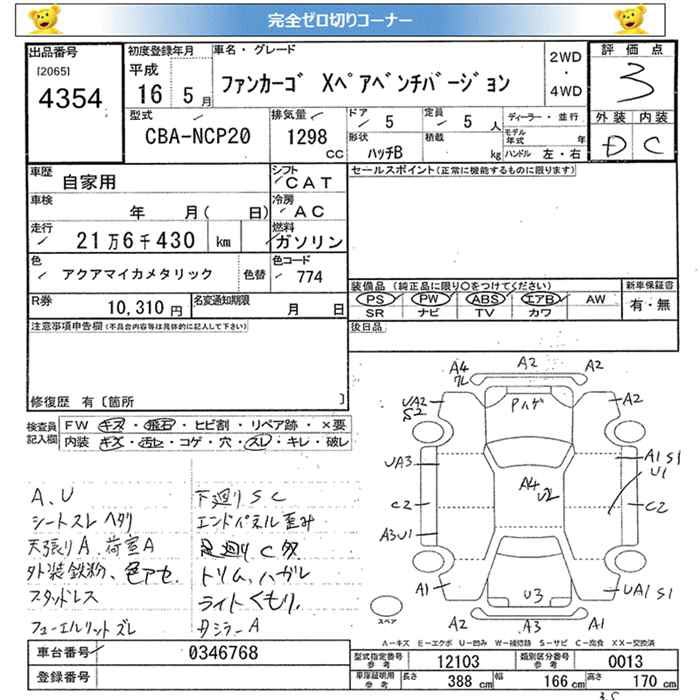 完全ゼロ切りコーナー
出品番号
[2065]
4354
初度登録年月
平成
16 5月
車名・グレード
ファンカーゴ Xペアベンチバージョン
2WD
・
4WD
評価点
3
外装 内装
D C
型式
CBA-NCP20
排気量
1298
CC
ドア
5
定員
5 人
形状
ハッチB
積載
kg
ディーラー・並行
モデル年式 年
ハンドル 左・右
車歴
自家用
シフト
CAT
車検
年 月( 日)
冷房
AC
走行
21万6千430 km
燃料
ガソリン
色
アクアマイカメタリック
色替
色コード
774
R券
10,310 円
名変通知期限
月 日
セールスポイント(正常に機能するものに限ります)
装備品 (純正品に限り○をつけてください)
新車保証書
PS PW ABS エアB AW
SR ナビ TV カワ
有・無
後日品
注意事項申告欄(不具合内容等は具体的に記入して下さい)
修復歴 有〔箇所 〕
検査員記入欄
FW キズ・飛石・ヒビ割・リペア跡・×要
内装 キズ・汚レ・コゲ・穴・スレ・キレ・破レ
A、U
シートスレ ヘタリ
天張りA、荷室A
外装鉄粉、色アセ
スタッドレス
フューエルリッド ズレ
下廻りSC
エンドパネル歪み
足廻りC
トリム、ハガレ
ライトくもり
ダッシュA
A4
A2
A2
UA2
S2
Pハゲ
A2
UA3
A4
U2
A1 S1
U1
C2
C2
A3U1
A1
U3
UA1 S1
A2
A3
A1
スペア
A=キズ E=エクボ U=凹み W=補修跡 S=サビ C=腐食 XX=交換済
車台番号
0346768
登録番号
型式指定番号
参考
12103
類別区分番号
参考
0013
車庫証明用
参考
長さ
388 cm
幅
166 cm
高さ
170 cm